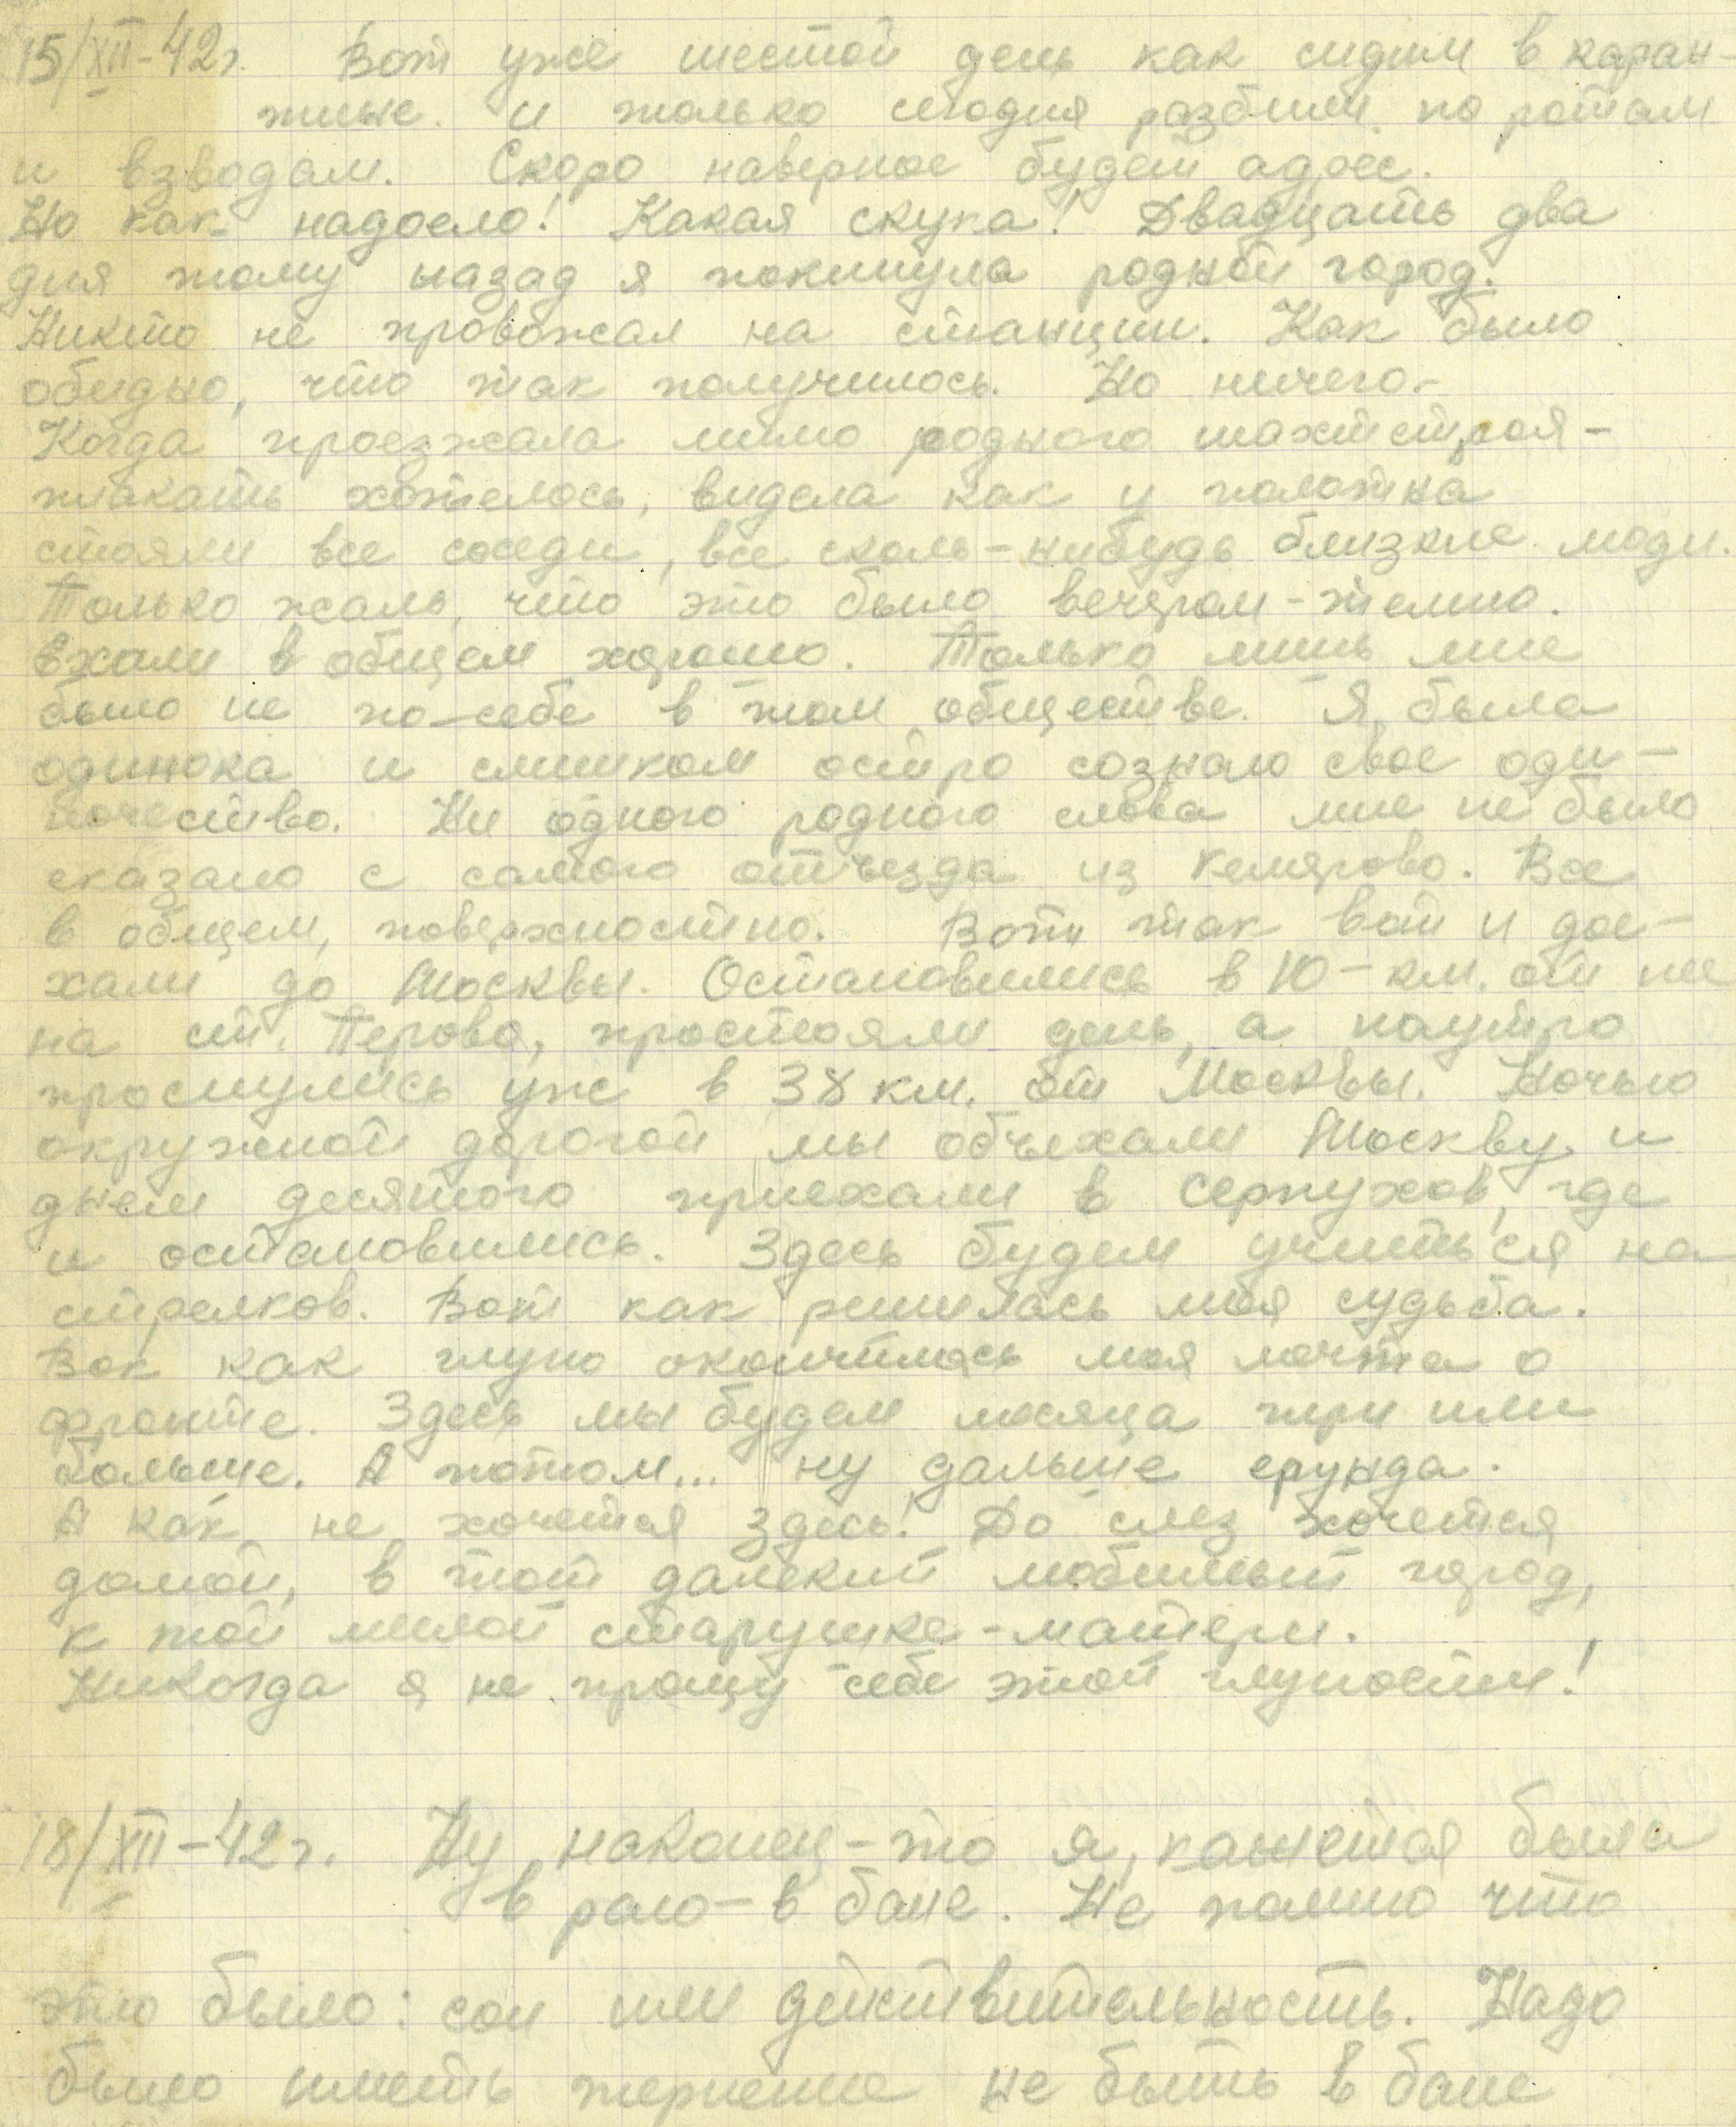 15/XII-42г. Вот уже шестой день как сидим в каран-
тине. и только сегодня разбили по ротам
и взводам. Скоро наверное будет адрес.
Но как надоело! Какая скука! Двадцать два
дня тому назад я покинула родной город.
Никто не провожал на станции. Как было
обидно, что так получилось. Но ничего.
Когда проезжала мимо родного шахтстроя-
плакать хотелось, видела как у полотна
стояли все соседи, все сколь-нибудь близкие люди.
Только жаль, что это было вечером-темно.
Ехали в общем хорошо. Только лишь мне
было не по-себе в том обществе. Я была
одинока и слишком остро сознаю свое оди-
ночество. Ни одного родного слова мне не было
сказано с самого отъезда из Кемерово. Все
в общем, поверхностно. Вот так вот и дое-
хали до Москвы. Остановились в 10-км. от нее
на ст. Перово, простояли день, а наутро
проснулись уже в 38 км. от Москвы. Ночью
окружной дорогой мы объехали Москву и
днем десятого приехали в Серпухов, где
и остановились. Здесь будем учиться на
стрелков. Вот как решилась моя судьба.
Вок как глупо окончилась моя мечта о
фронте. Здесь мы будем месяца три или
больше. А потом... ну дальше ерунда.
А как не хочется здесь! До слез хочется
домой, в тот далекий любимый город,
к той милой старушке-матери.
Никогда я не прощу себе этой глупости!
18/XII-42г. Ну, наконец-то я, кажется была
в раю-в бане. Не помню что
это было: сон или действительность. Надо
было иметь терпение не быть в бане